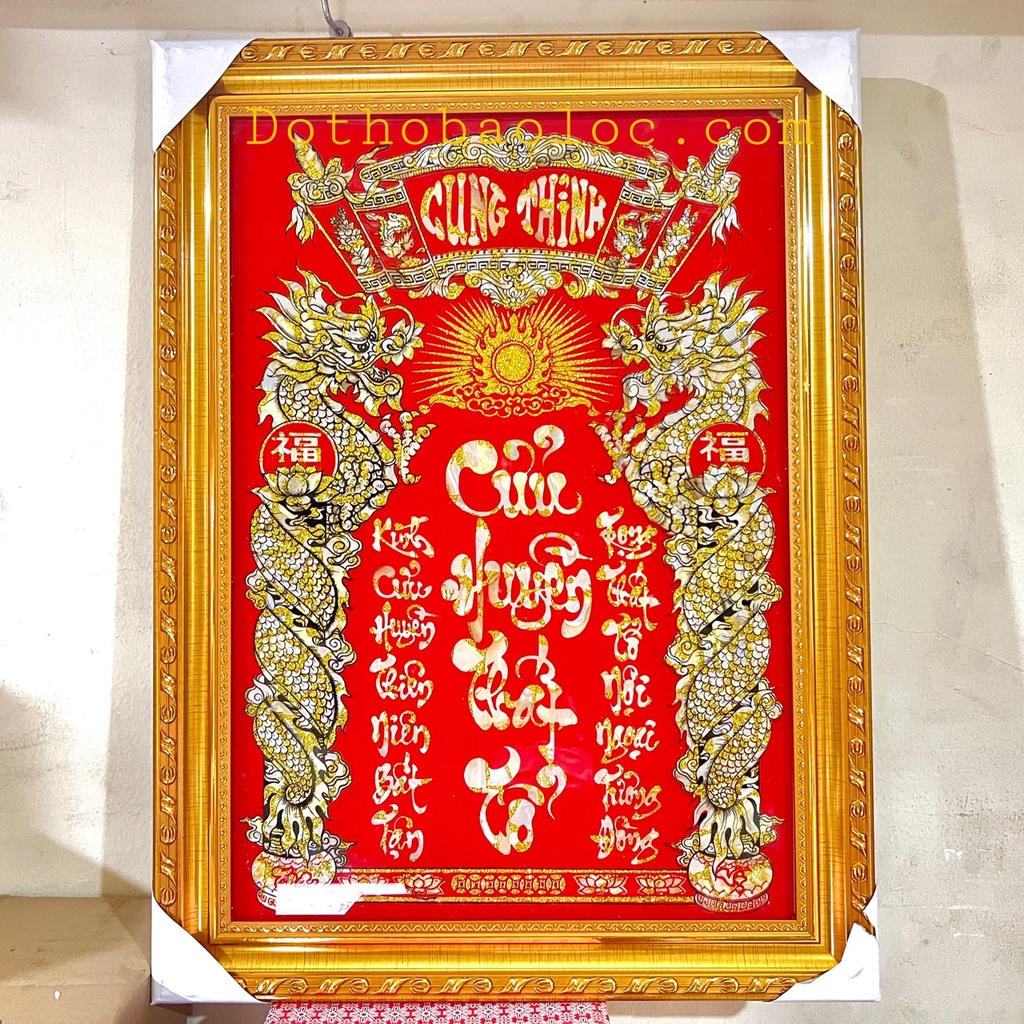 Dothobaoloc.com
CUNG THiNH
福
福
Cửu Huyền Thất Tổ
Kính Cửu Huyền Thiên Niên Bất Tận
Trọng Thất Tổ Nội Ngoại Tương Đồng